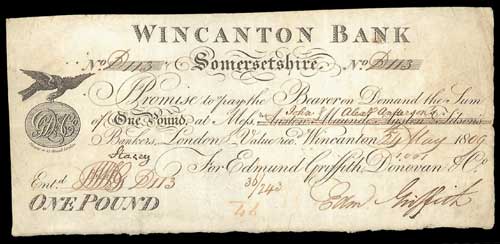 WINCANTON BANK
No D113 Somersetshire, No D113
I Promise to pay the Bearer on Demand the Sum
of One Pound, at Messrs John & Alexr Anderson
Bankers, London Value recd Wincanton 24 May 1809
Stacey
For Edmund Griffith, Donovan & Co.
Entd D113
30/240
Edm Griffith
ONE POUND